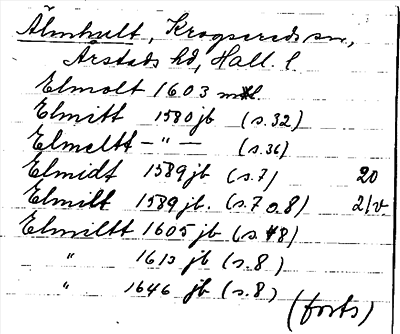 Älmhult, Krogsereds sn,
Årstads hd, Hall. l.
Elmolt 1603 mtl.
Elmitt 1580 jb (s. 32)
Elmeltt - " - (s. 36)
Elmidt 1589 jb (s. 7) 20
Elmilt 1589 jb. (s. 7 o 8) 21v.
Elmeltt 1605 jb (s. 48)
" 1613 jb (s. 8)
" 1646 jb (s. 8)
(forts)